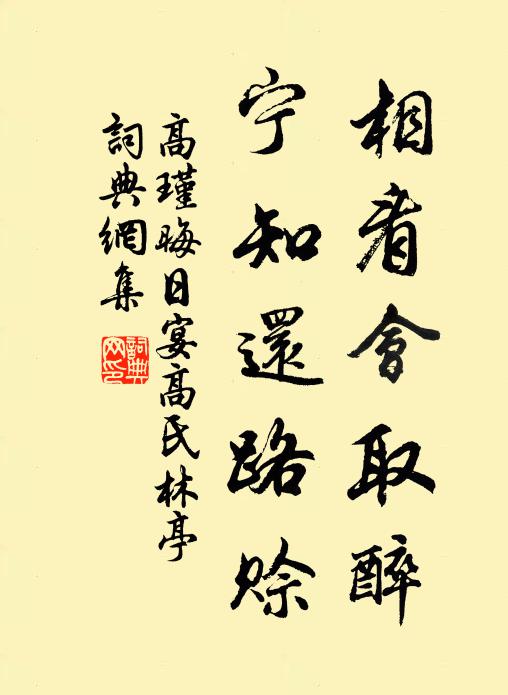 相看會取醉
宁知還路賒
高瑾晦日宴高氏林亭
詞典網集
詞典网印